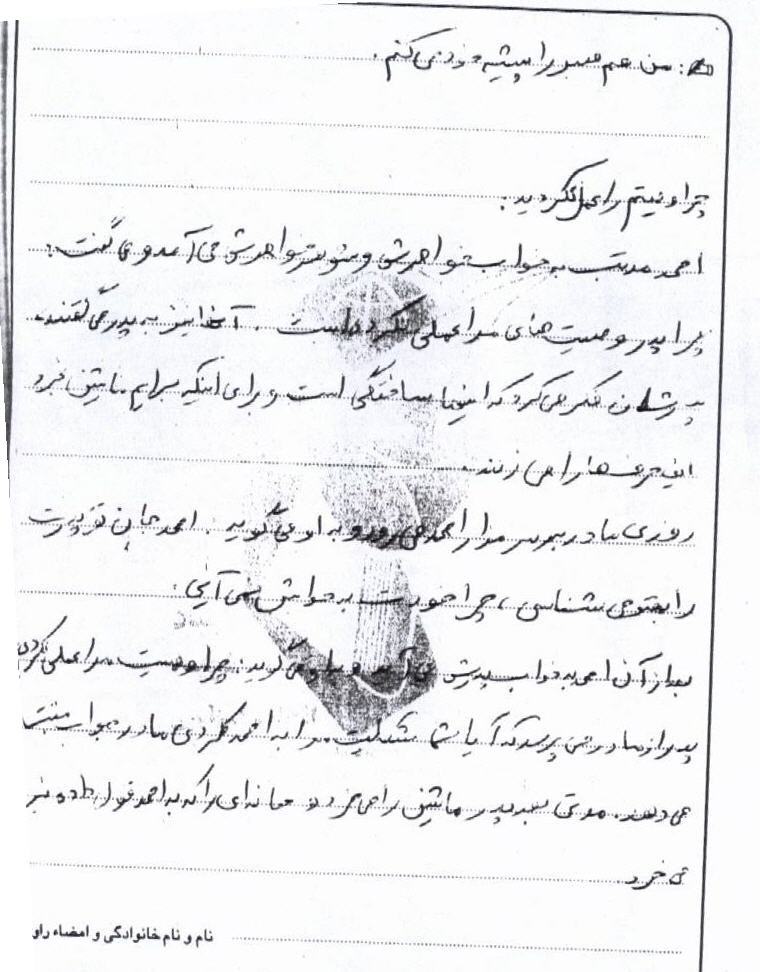 : من هم صبر را پیشه خود می کنم.
چرا وصیتم را عمل نکردید:
احمد مرتب به خواب خواهرش و شوهر خواهرش می آمد و می گفت:
چرا پدر وصیت های مرا عملی نکرده است. آنها نیز به پدر می گفتند.
پدرشان فکر می کرد که اینها ساختگی است و برای اینکه برایم ماشین بخرد
این حرف ها را می زنند.
روزی مادر بر سر مزار احمد می رود و به او می گوید: احمد جان تو پدرت
را بهتر می شناسی، چرا خودت به خوابش نمی آئی.
بعد از آن احمد به خواب پدرش می آید و به او می گوید: چرا وصیت مرا عملی نکردی
پدر از مادر می پرسد که آیا شما شکایت مرا به احمد کردی مادر جواب مثبت
می دهد. مدتی بعد پدر ماشین را می خرد و خانه ای را که به احمد قول داده نیز
می خرد
نام و نام خانوادگی و امضاء راو